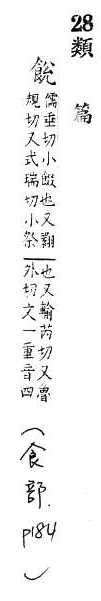 28 類篇
䬽
儒垂切小餟也又翾
規切又式瑞切小祭
也又輸芮切又魯
外切文一重音四
(食部. p184)